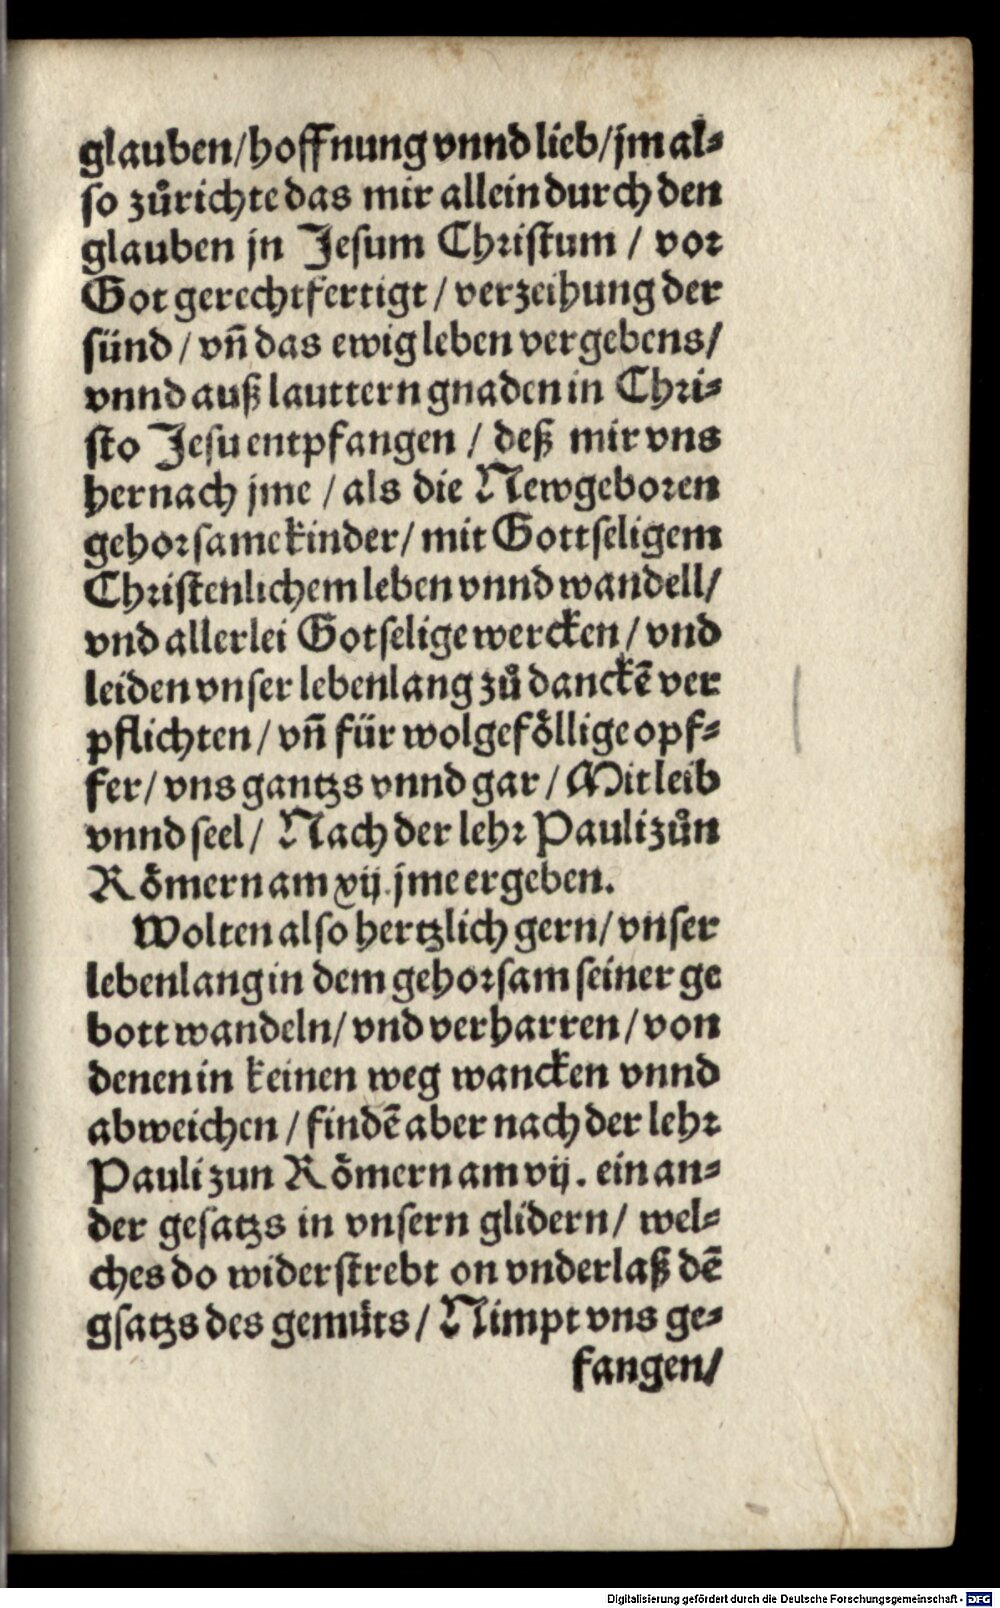 glauben/hoffnung vnnd lieb/jm al⸗
so zůrichte das mir allein durch den
glauben jn Jesum Christum / vor
Got gerechtfertigt / verzeihung der
sünd / vñ das ewig leben vergebens/
vnnd auß lauttern gnaden in Chri⸗
sto Jesu entpfangen / deß mir vns
hernach jme / als die Newgeboren
gehorsame kinder/ mit Gottseligem
Christenlichem leben vnnd wandell/
vnd allerlei Gotselige wercken / vnd
leiden vnser lebenlang zů danckẽ ver
pflichten / vñ für wolgeföllige opf⸗
fer/ vns gantzs vnnd gar / Mit leib
vnnd seel/ Nach der lehr Pauli zůn
Römern am xij. jme ergeben.
Wolten also hertzlich gern/ vnser
lebenlang in dem gehorsam seiner ge
bott wandeln/ vnd verharren/ von
denen in keinen weg wancken vnnd
abweichen / findẽ aber nach der lehr
Pauli zun Römern am vij. ein an⸗
der gesatzs in vnsern glidern/ wel⸗
ches do widerstrebt on vnderlaß dẽ
gsatzs des gemüts / Nimpt vns ge⸗
fangen/
Digitalisierung gefördert durch die Deutsche Forschungsgemeinschaft - DFG